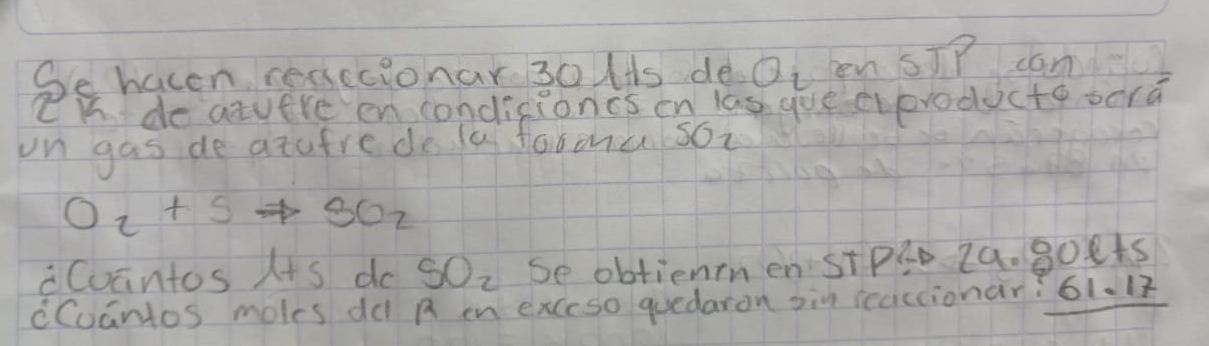 Se hacen reaccionar 30 lts de O₂ en STP con
2 K de azufre en condiciones en las que el producto será
un gas de azufre de la forma SO₂
O₂ + S ⇒ SO₂
¿Cuántos lts de SO₂ se obtienen en STP? 29.80 lts
¿Cuántos moles del R en exceso quedaron sin reaccionar? 61.17